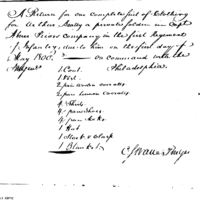 A Return for one complete suit of Clothing
for Arthur a private soldier in Capt
Abner Priors company in the first Regiment
of Infantry, due to him on the first day of
May 1800. on command with the
Philadelphia
1 Coat
1 Vest
2 pair woolen overalls
2 pair linnen overalls
4 Shirts
4 pair Shoes
4 pair socks
1 Hat
1 Stock & clasp
1 Blanket